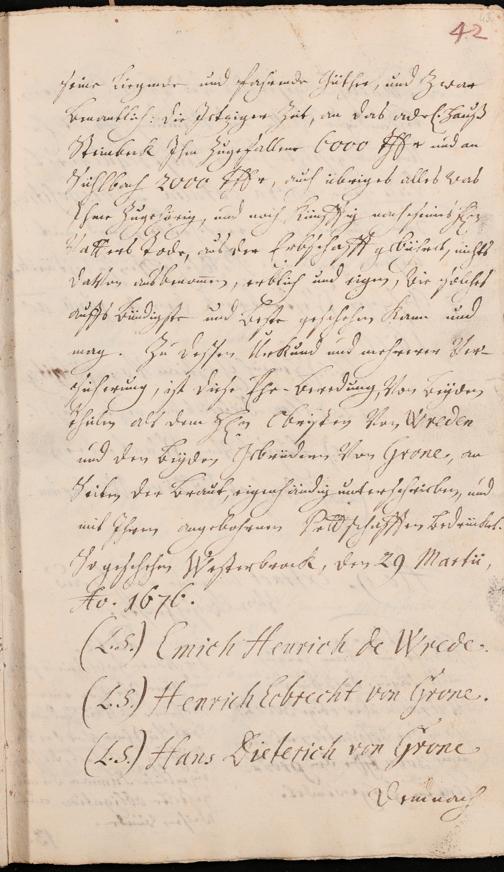 42
seine liegende und fahrende Güther, und zwar
benantlich: die itziger Zeit, an das adel. Hauß
Steinbeck Ihm zugefallene 6000 und an
Sühlbach 2000, auch übriges alles was
Ihme zugehörig, und noch künfftig nach seines H.
Vatters Tode, aus der Erbschafft gebühret, nichts
davon ausbenommen, erblich und eigen, wie solches
auffs bündigste und beste geschehen kann und
mag. Zu dessen Uhrkund und mehrerer Ver-
sicherung, ist diese Ehe-Beredung, von beyden
Theilen als dem H. Obristen von Wreden
und den beyden Gebrüdern von Grone, an
Seiten der Braut, eigenhändig unterschrieben, und
mit Ihren angebohrnen Pettschafften bedrücket.
So geschehen Westerbrock, den 29 Martii,
Ao. 1676.
(L.S.) Emich Henrich de Wrede.
(L.S.) Henrich Ecbrecht von Grone.
(L.S.) Hans Dieterich von Grone
Demnach